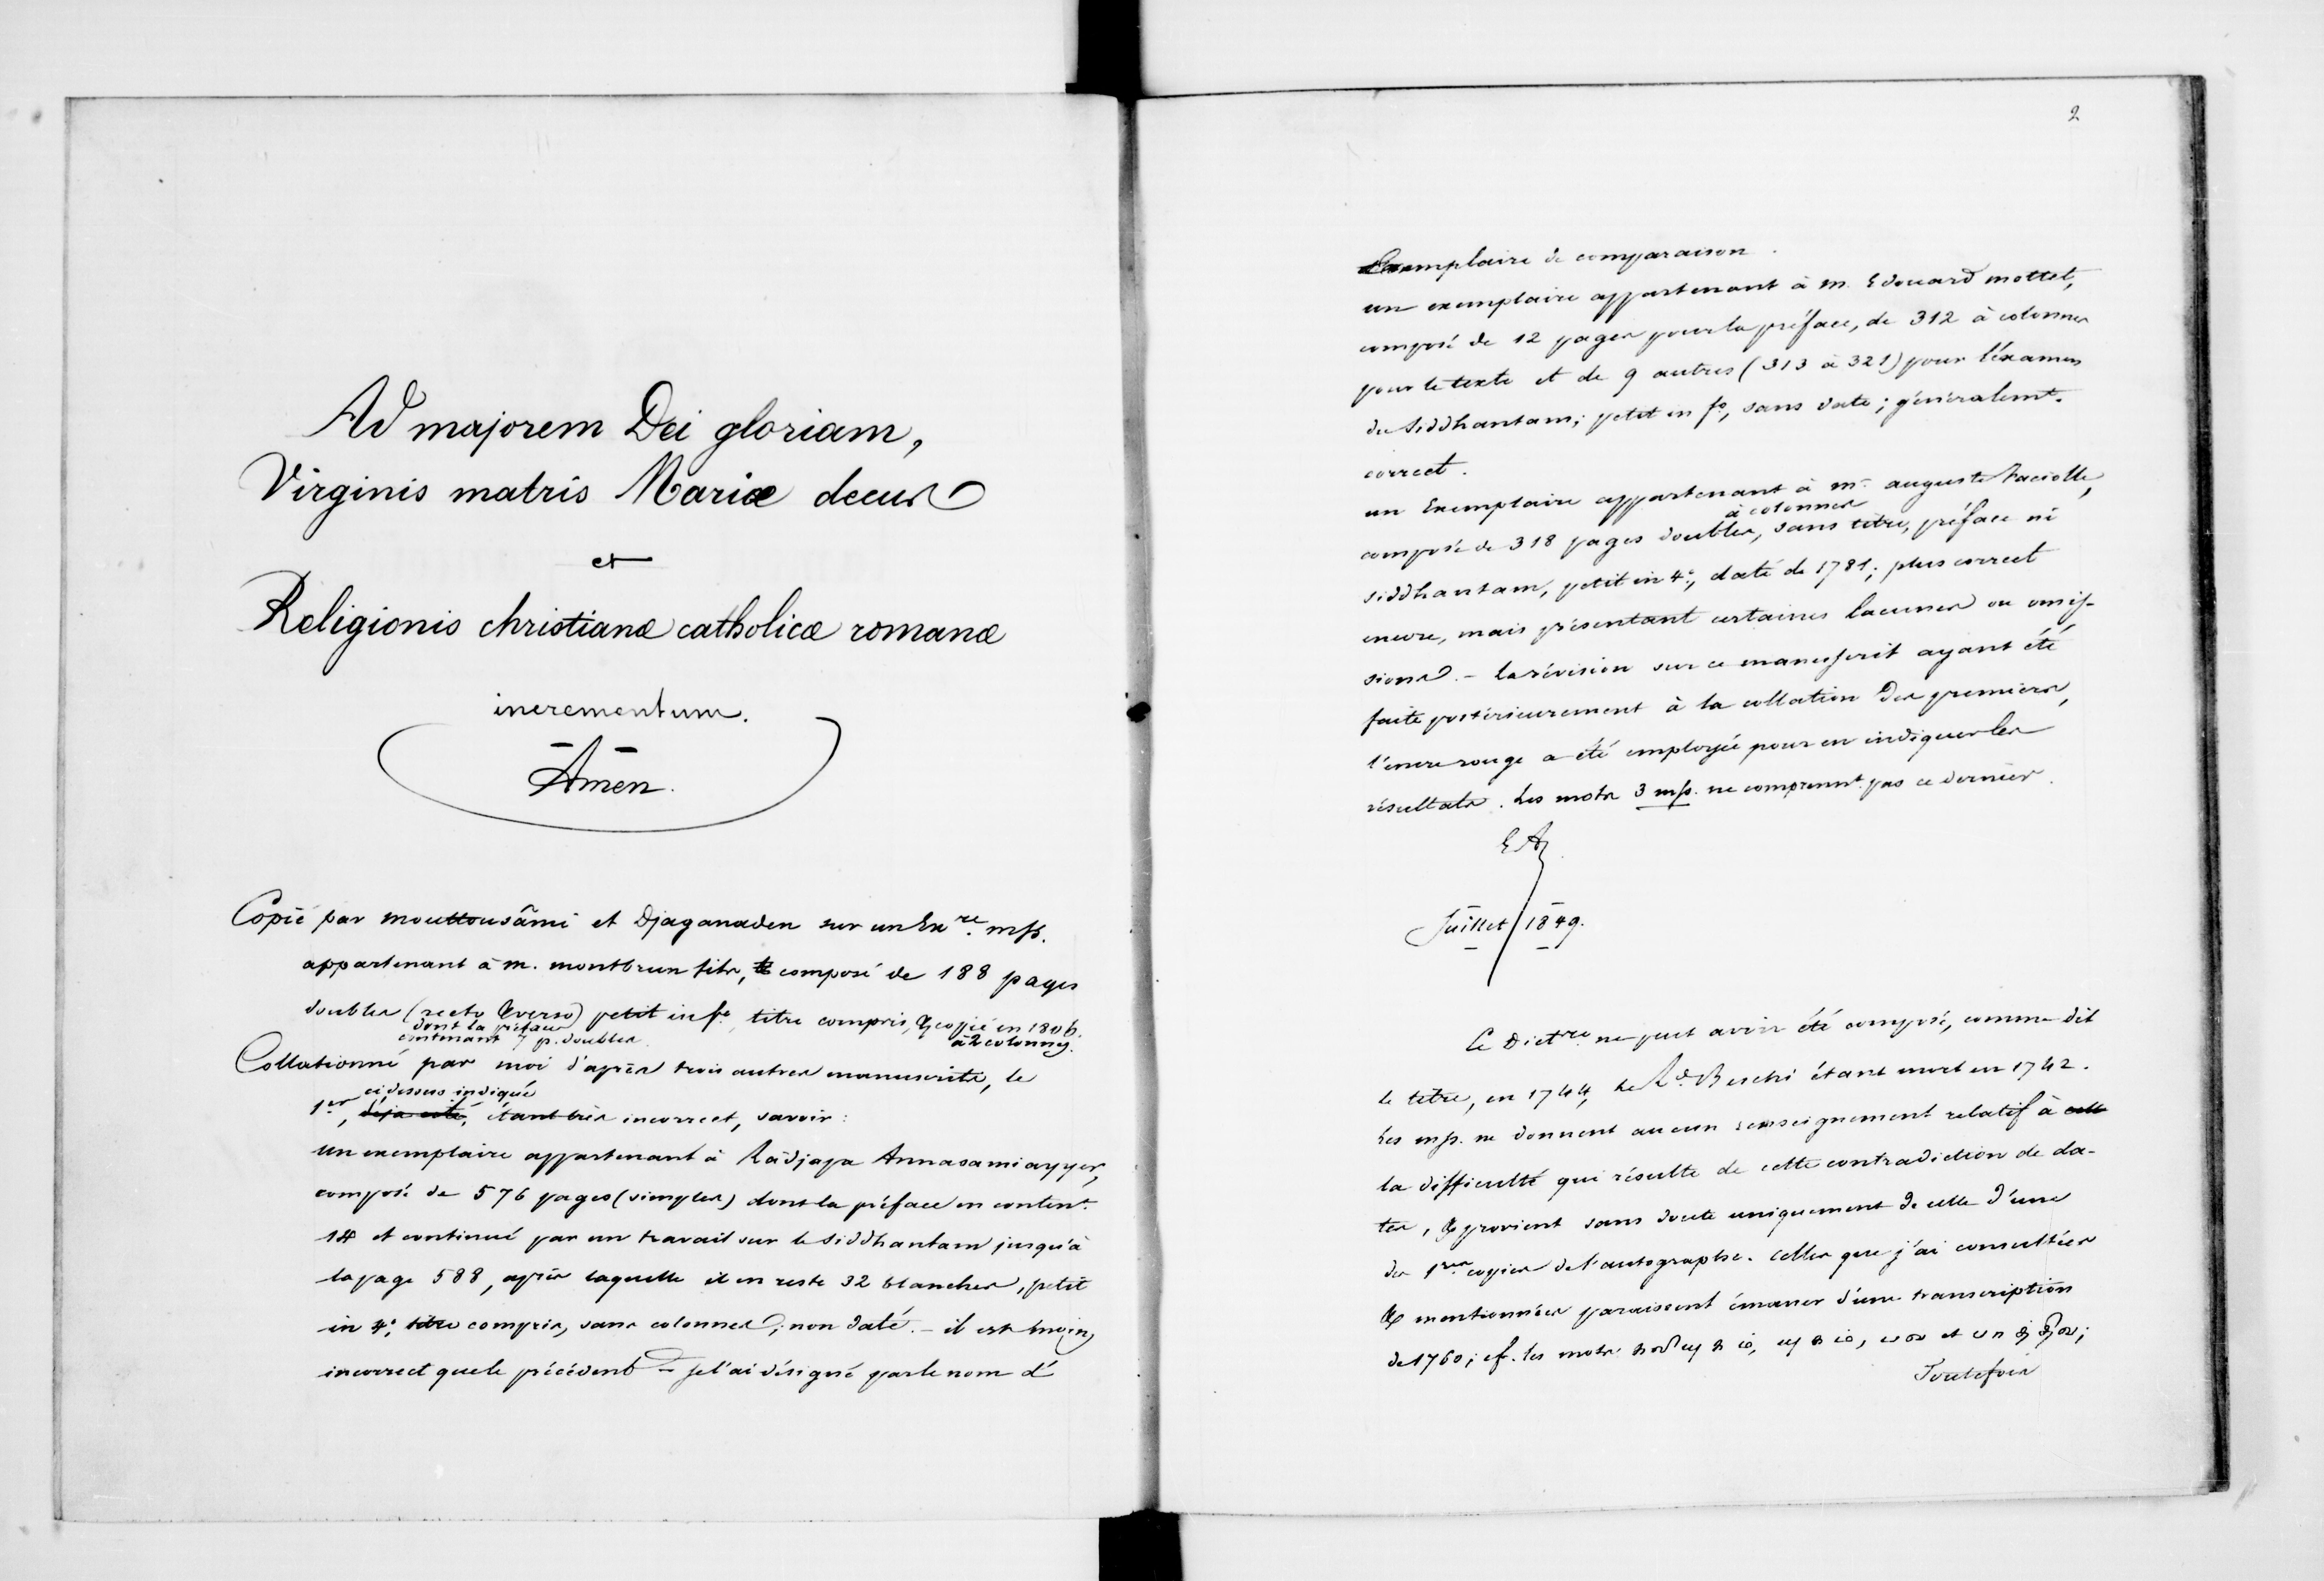 Ad majorem Dei gloriam,
Virginis matris Mariæ decus
et
Religionis christianæ catholicæ romanæ
incrementum.
Amen.
Copié par mouttousâmi et Djaganaden sur un Exre. mss.
appartenant à m. montbrun fils, composé de 188 pages
doubles (recto & verso) petit in fo. titre compris, & copié en 1806.
dont la préface
contenant 7 p. doubles.
à 2 colonnes.
Collationné par moi d'après trois autres manuscrits, le
ci dessus indiqué
1er, déja cité, étant très incorrect, savoir:
un exemplaire appartenant à Râdjaya Annasamiayyer,
composé de 576 pages (simples) dont la préface en contient
14 et continué par un travail sur le siddhantam jusqu'à
la page 588, après laquelle il en reste 32 blanches, petit
in 4°, titre compris, sans colonnes; non daté. - il est moins
incorrect que le précédent - je l'ai désigné par le nom d'
2
Exemplaire de comparaison.
un exemplaire appartenant à m. Edouard mottet,
composé de 12 pages pour la préface, de 312 à colonnes
pour le texte et de 9 autres (313 à 321) pour l'examen
du Siddhantam; petit in fo, sans date; généralemt.
correct.
un Exemplaire appartenant à mr. auguste
à colonnes
composé de 318 pages doubles, sans titre, préface ni
siddhantam, petit in 4°, daté de 1781; plus correct
encore, mais présentant certaines lacunes ou omis-
sions. - la révision sur ce manuscrit ayant été
faite postérieurement à la collation des premiers,
l'encre rouge a été employée pour en indiquer les
résultats. Les mots 3 mss. ne comprennt. pas ce dernier.
EA
Juillet 1849.
Ce Dictre. ne peut avoir été composé, comme dit
le titre, en 1744, le Rd. Beschi étant mort en 1742.
Les mss. ne donnent aucun renseignement relatif à celle
la difficulté qui résulte de cette contradiction de da-
tes, & provient sans doute uniquement de celle d'une
des 1res copies de l'autographe. Celles que j'ai consultées
& mentionnées paraissent émaner d'une transcription
de 1760; cf. les mots et
Toutefois